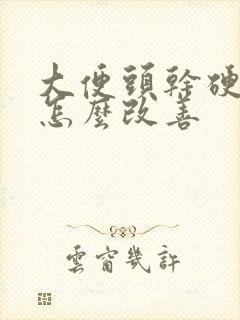 大便頭幹硬
怎麼改善
雲窗幾許